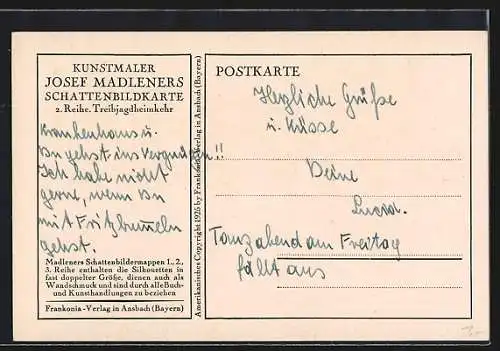 KUNSTMALER
JOSEF MADLENERS
SCHATTENBILDKARTE
2. Reihe. Treibjagdheimkehr
Krankenhaus u.
Du gehst ins Vergnügen!!
Ich habe nicht
gerne, wenn Du
mit Fritz bummeln
gehst.
Madleners Schattenbildermappen 1., 2.,
3. Reihe enthalten die Silhouetten in
fast doppelter Größe, dienen auch als
Wandschmuck und sind durch alle Buch-
und Kunsthandlungen zu beziehen
Frankonia-Verlag in Ansbach (Bayern)
Amerikanisches Copyright 1925 by Frankonia-Verlag in Ansbach (Bayern)
POSTKARTE
Herzliche Grüße
u. Küsse
Deine
Tanzabend am Freitag
fällt aus